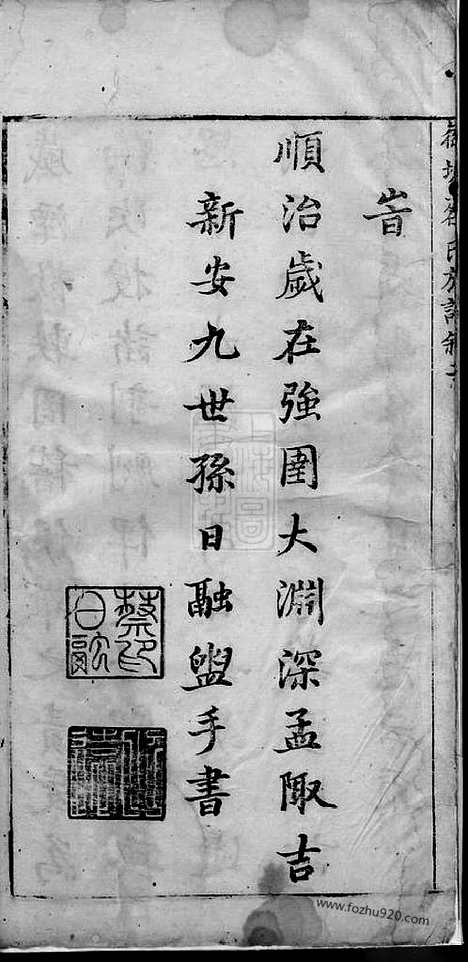 旹
順治歲在強圉大淵深孟陬吉
新安九世孫日融盥手書
蔡日融印
www.fozhu920.com